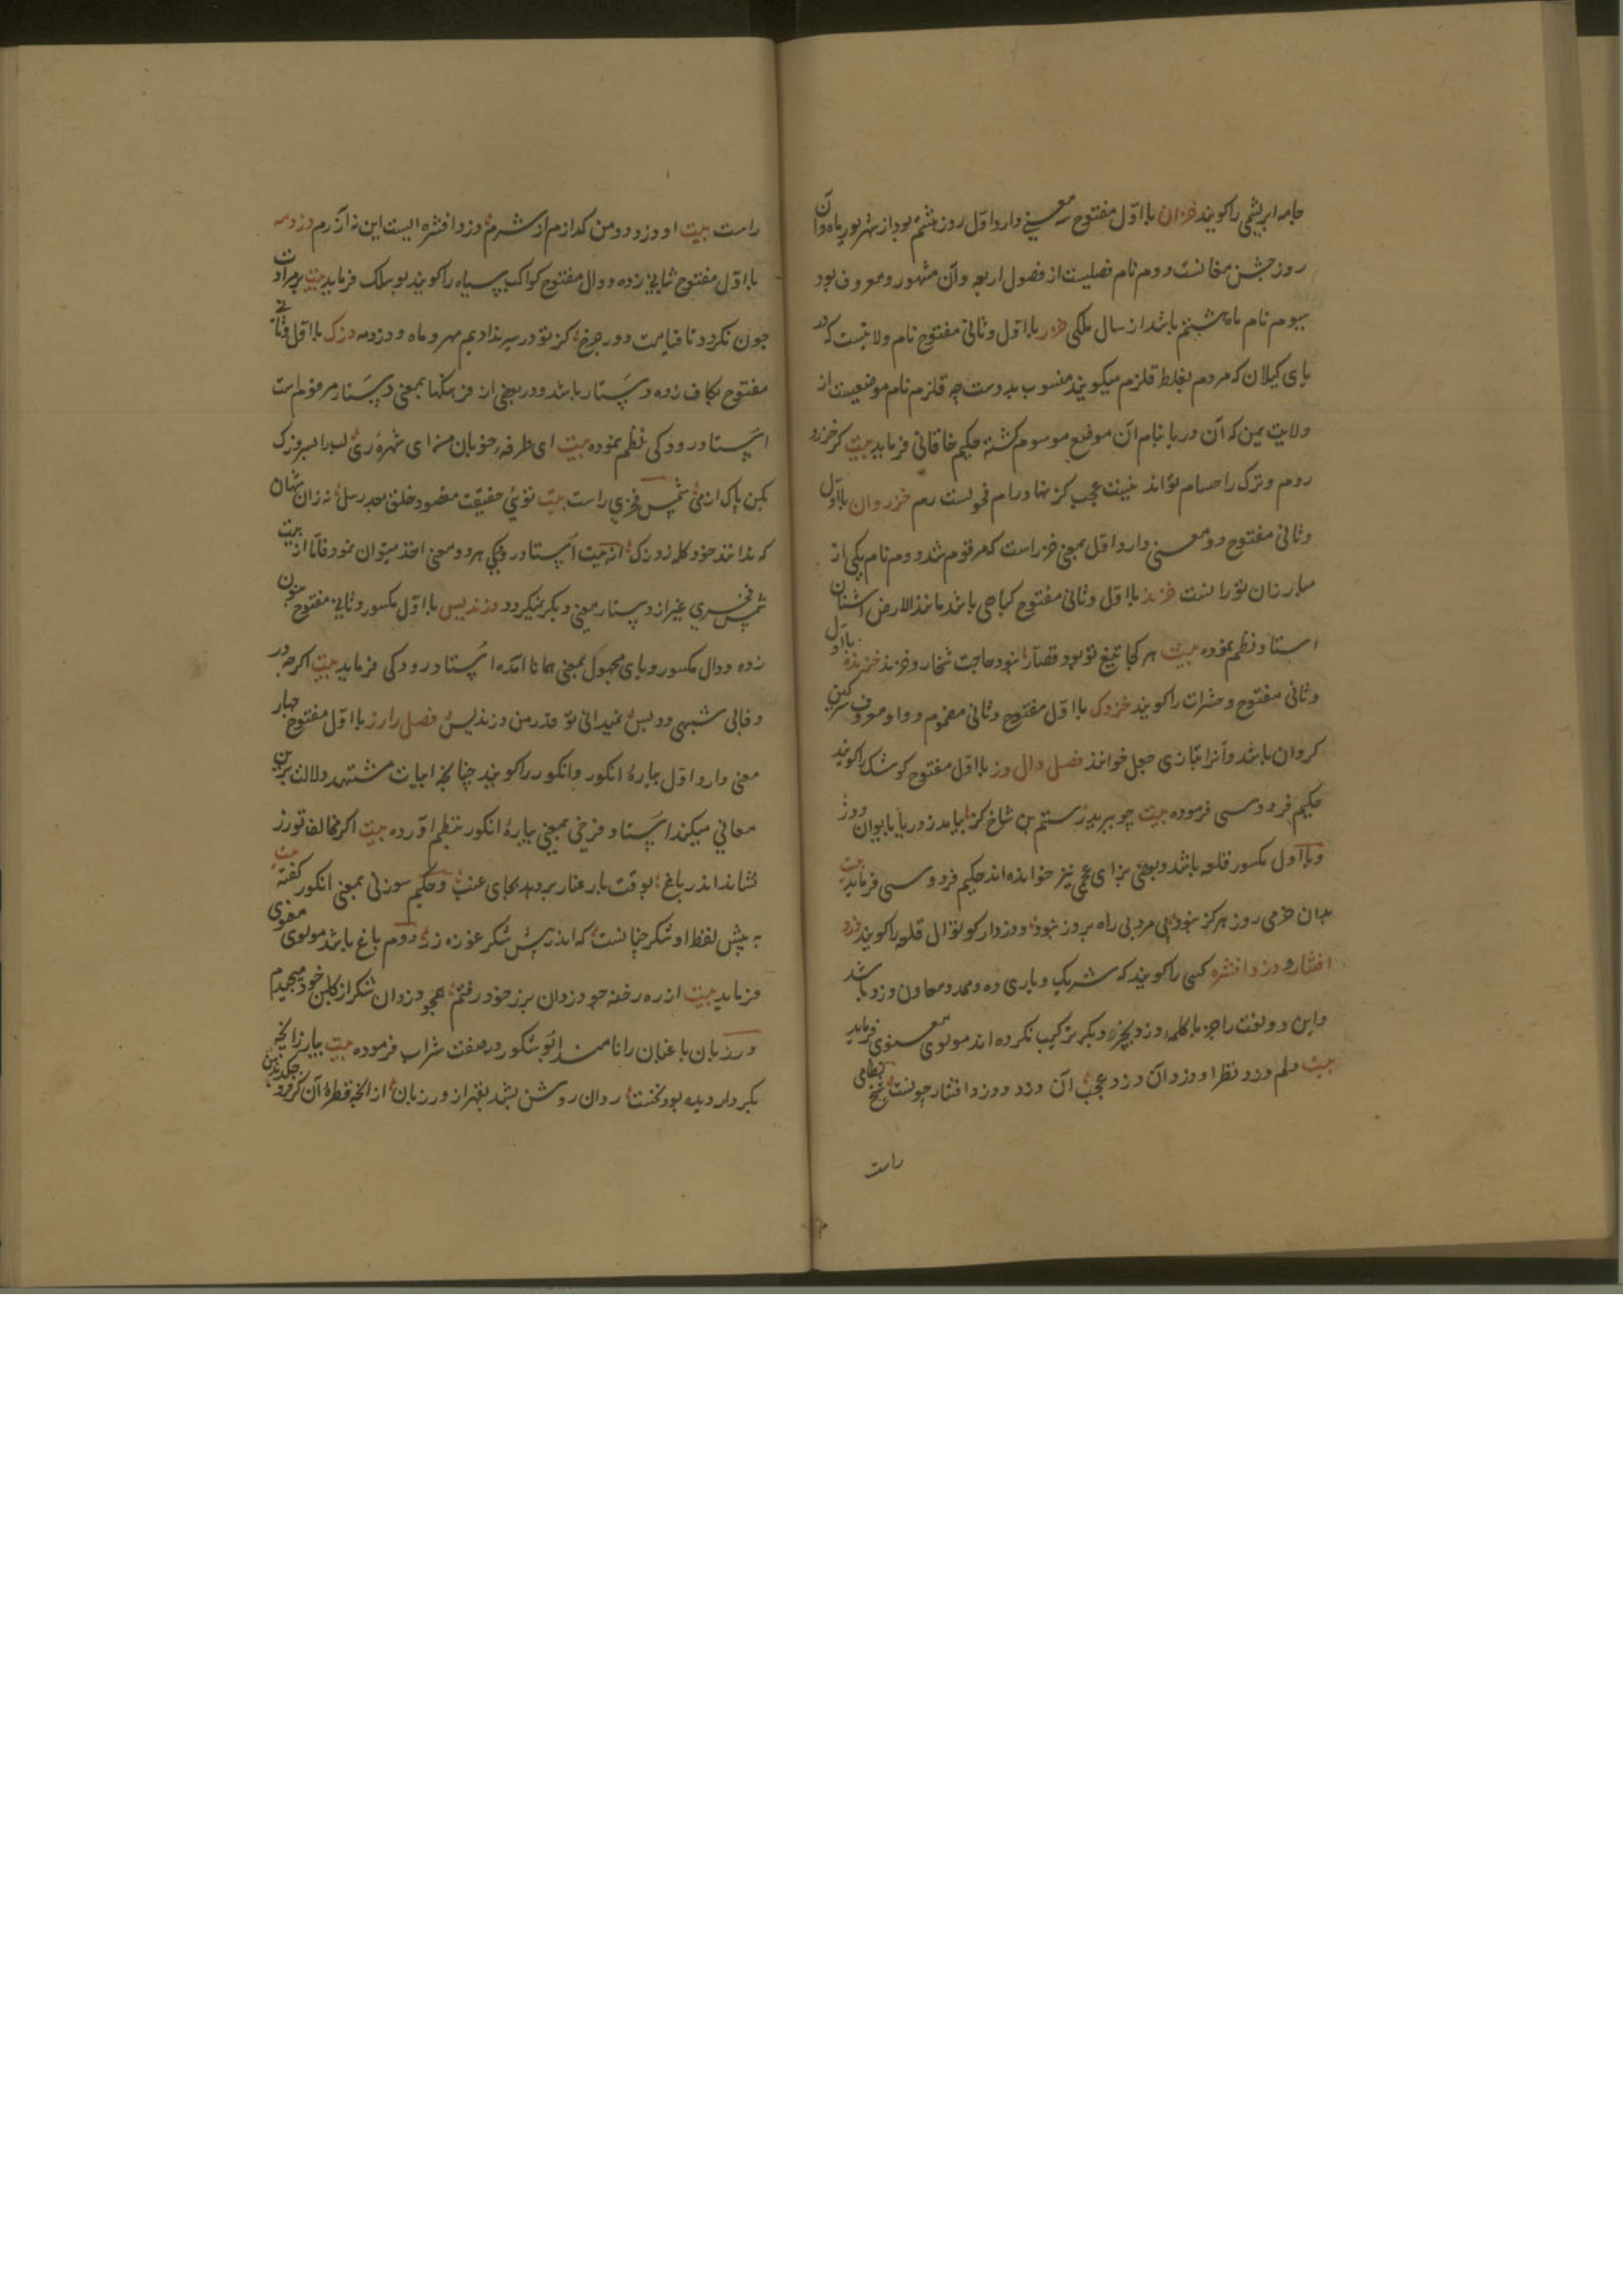 جامه ابریشمی را کویند خزان با اول مفتوح سه معنی دارد اول روز هشتم بود از شهریور ماه و آن
روز جشن مغانست دوم نام فصلیست از فصول اربعه و آن مشهور و معروف بود
سیوم نام ماه هشتم باشد از سال ملکی خزر با اول و ثانی مفتوح نام ولایتیست که در
یای کیلان که مردم بغلط قلزم میکویند منسوب بدوست چه قلزم نام موضعیست از
ولایت یمن که آن دریا بنام آن موضع موسوم کشته حکیم خاقانی فرماید بیت کر خزر و
روم و ترک را حسام تواند نیست عجب کز نهاد رام فحولست رم خزروان با اول
و ثانی مفتوح دو معنی دارد اول بمعنی خزر است که مرقوم شد دوم نام یکی از
مبارزان تورانست خزند با اول و ثانی مفتوح کیاهی باشد مانند الارض اشنان
استاد نظم نموده بیت هر کجا تیغ تو بود قصار نبود حاجت شخار و خزند خزنده با اول
و ثانی مفتوح و حشرات را کویند خزوک با اول مفتوح و ثانی مضموم و واو معروف سرکین
کردان باشد و آنرا بتازی جعل خوانند فصل دال دز با اول مفتوح کوشک را کویند
حکیم فردوسی فرموده بیت چو ببرید رستم بن شاخ کز بیامد ز دریا بایوان و دز
و با اول مکسور قلعه باشد و بعضی بزای عجمی نیز خوانده اند حکیم فردوسی فرماید بیت
بدان خرمی روز هرکز نبود پی مرد بی راه بر دز نبود و دزدار کوتوال قلعه را کویند دزد
افشار و دزد افشره کسی را کویند که شریک و یاری ده و ممد و معاون دزد باشد
و این دو لغت را جز با کلمه دزد بچیزی دیکر ترکیب نکرده اند مولوی معنوی فرماید
بیت دلم دزد و نظر او دزد و آن دزد عجب آن دزد و دزد افشار چونست شیخ نظامی
راست
راست بیت او دزد و من کدازم از شرم دزد افشره ایست این نه آزرم دزدمه
با اول مفتوح ثانی زده و دال مفتوح کواکب سیاه را کویند بوسلک فرماید بیت بر مرادت
چون نکردد تا قیامت دور چرخ کز تو در سر بذادیم مهر و ماه و دزدمه دزک با اول و ثانی
مفتوح بکاف زده دستار باشد و در بعضی از فرهنکها بمعنی دستار مرقوم است
استاد رودکی نظم نموده بیت ای طرفه خوبان من ای شهره ری لب را بسر دزک
بکن پاک از می شمس فخری راست بیت توئی حقیقت مقصود خلق بعد رسل نه زان نهان
که ندانند خود کله ز دزک از بیت استاد رودکی هر دو معنی اخذ میتوان نمود فاما از بیت
شمس فخری غیر از دستار معنی دیکر نمیکردد دزندیس با اول مکسور و ثانی مفتوح بنون
زده و دال مکسور و یای مجهول بمعنی همانا آمده استاد رودکی فرماید بیت اکرچه در
وفائی شبهی و دیس نمیدانی تو قدر من دزندیس فصل را رز با اول مفتوح چهار
معنی دارد اول بیاره انکور و انکور را کویند چنانچه ابیات مشتهد دلالت بر این
معانی میکند استاد فرخی بمعنی بیاره انکور بنظم آورده بیت اکر مخالف تو رز
نشاند اندر باغ بوقت بار عنا بر دهد بجای عنب و حکیم سوزنی بمعنی انکور کفته بیت
به پیش لفظ او شکر چنانست که اندر پیش شکر غوزه رز دوم باغ باشد مولوی معنوی
فرماید بیت از ره رخنه چو دزدان برز خود رفتم همچو دزدان شکر از کلبن خود میچیدم
و رزبان باغبان را نامند ابوشکور در صفت شراب فرموده بیت بیار زانچه
بکردار دیده بود نخست روان روشن بستد بقهر از رزبان از آنچه قطره آن کر فرو چکد بزمین